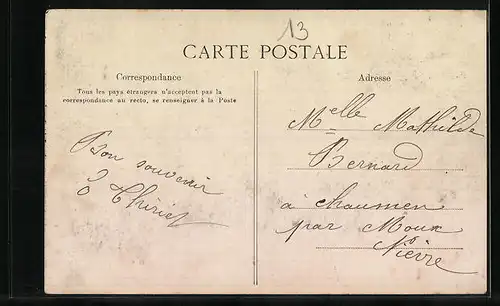 13
CARTE POSTALE
Correspondance
Tous les pays étrangers n'acceptent pas la
correspondance au recto, se renseigner à la Poste
Bon souvenir
Thiriet
Adresse
Melle Mathilde
Bernard
à chaumien
par Moux
Nièvre